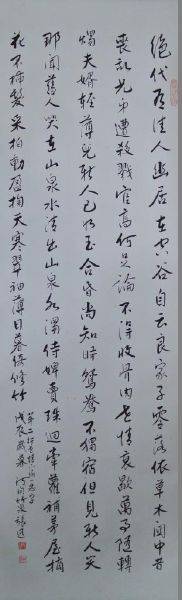 絕代有佳人幽居在空谷自云良家子零落依草木關中昔
喪亂兄弟遭殺戮官高何足論不得收骨肉世情衰歇萬事隨轉
燭夫婿輕薄兒新人已如玉合昏尚知時鴛鴦不獨宿但見新人笑
那聞舊人哭在山泉水清出山泉水濁侍婢賣珠迴牽蘿補茅屋摘
花不插髮采柏動盈掬天寒翠袖薄日暮倚修竹
第二行
戊辰歲暮